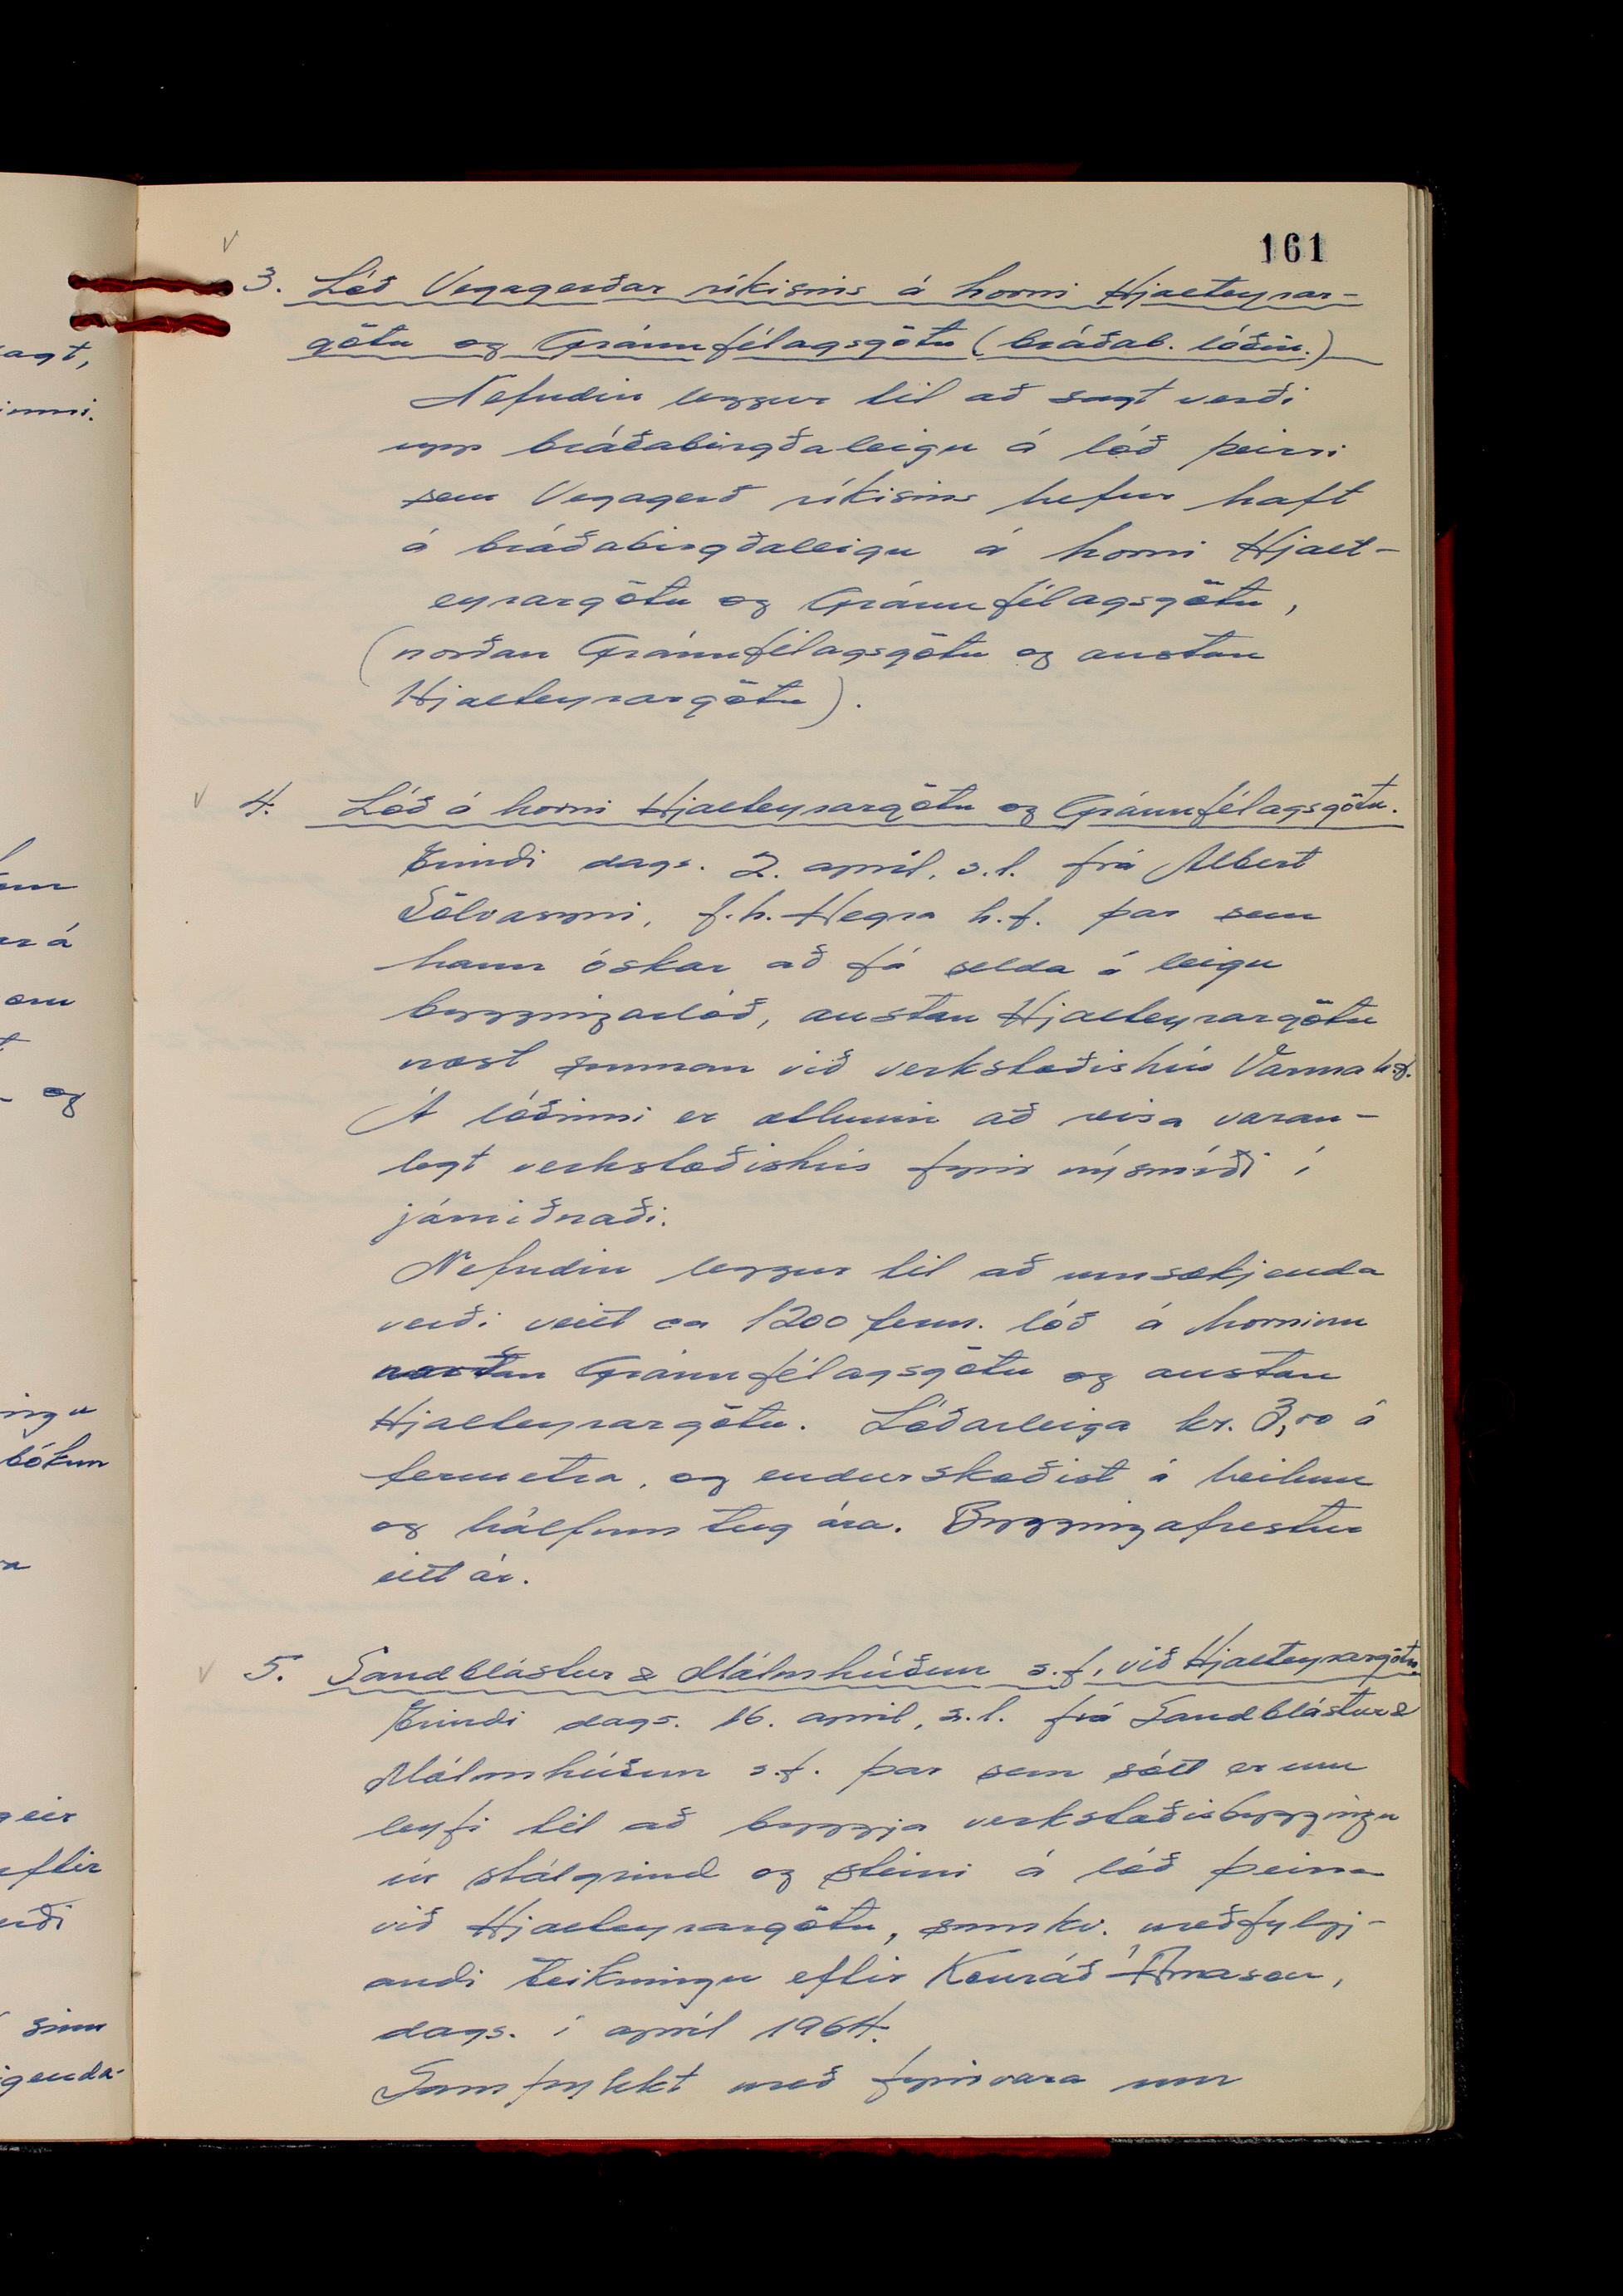 161
3. Lóð Vegagerðar ríkisins á horni Hjalteyrar-
götu og Gránufélagsgötu (bráðab. lóðin.)
Nefndin leggur til að sagt verði
upp bráðabirgðaleigu á lóð þeirri
sem Vegagerð ríkisins hefur haft
á bráðabirgðaleigu á horni Hjalt-
eyrargötu og Gránufélagsgötu,
(norðan Gránufélagsgötu og austan
Hjalteyrargötu).
4. Lóð á horni Hjalteyrargötu og Gránufélagsgötu.
Erindi dags. 2. apríl, s.l. frá Albert
Sölvasyni, f.h. Hegra h.f. þar sem
hann óskar að fá selda á leigu
byggingarlóð, austan Hjalteyrargötu
næst sunnan við verkstæðishús Varma h.f.
Á lóðinni er ætlunin að reisa varan-
legt verkstæðishús fyrir nýsmíði í
járniðnaði.
Nefndin leggur til að umsækjenda
verði veitt ca 1200 ferm. lóð á horninu
norðan Gránufélagsgötu og austan
Hjalteyrargötu. Lóðarleiga kr. 3,50 á
fermetra, og endurskoðist á heilum
og hálfum tug ára. Byggingafrestur
eitt ár.
5. Sandblástur & Málmhúðun s.f, við Hjalteyrargötu.
Erindi dags. 16. apríl, s.l. frá Sandblástur &
Málmhúðun s.f. þar sem sótt er um
leyfi til að byggja verkstæðisbyggingu
úr stálgrind og steini á lóð þeirra
við Hjalteyrargötu, samkv. meðfylgj-
andi teikningu eftir Konráð Árnason,
dags. í apríl 1964.
Samþykkt með fyrirvara um
agt,
inni.
er á
og
bókun
geir
eftir
sinn